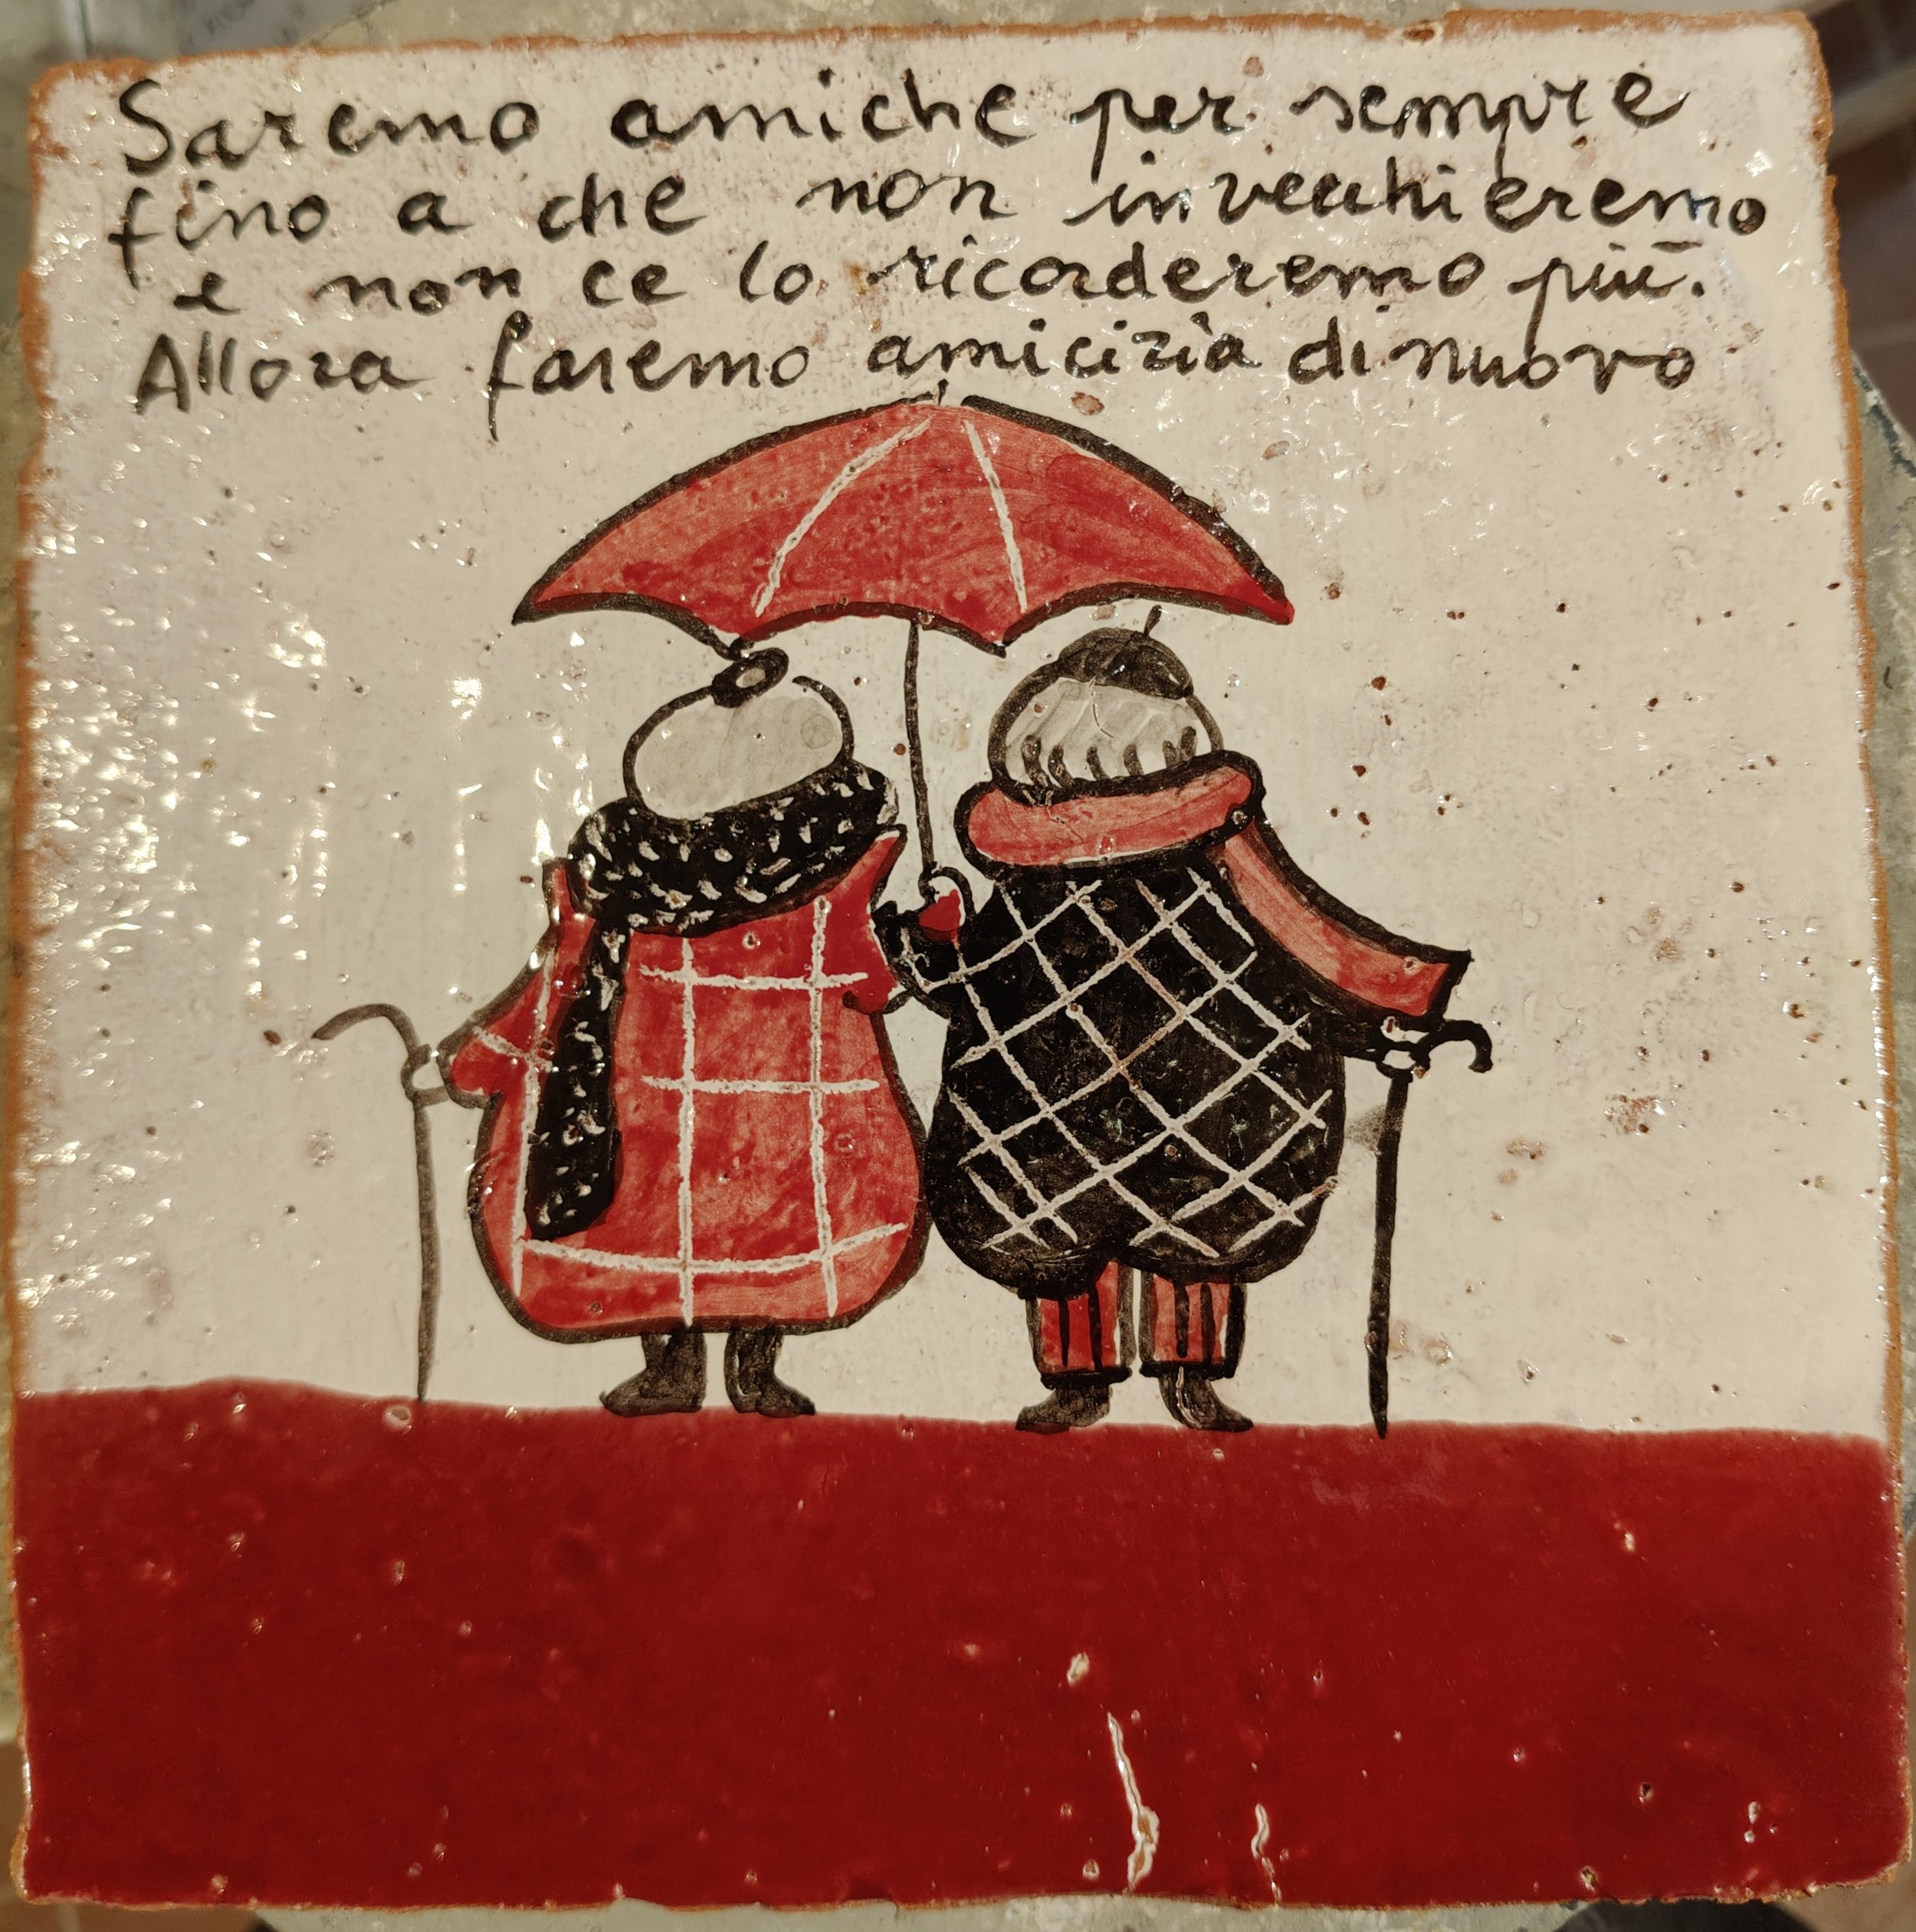 Saremo amiche per sempre
fino a che non invecchieremo
e non ce lo ricorderemo più.
Allora faremo amicizia di nuovo